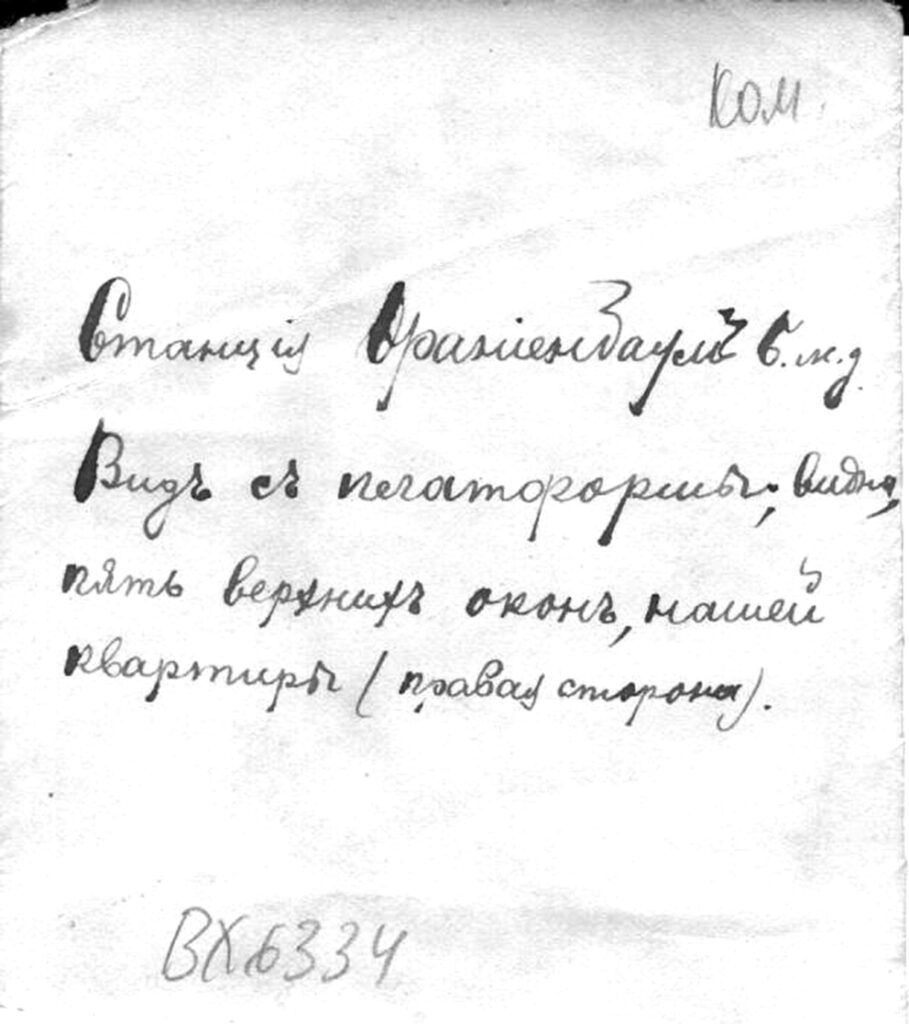 Ком.
Станція Ораніенбаумъ Б.ж.д.
Видъ съ платформы; видны,
пять верхнихъ оконъ, нашей
квартиры (правая сторона).
ВХ 6334